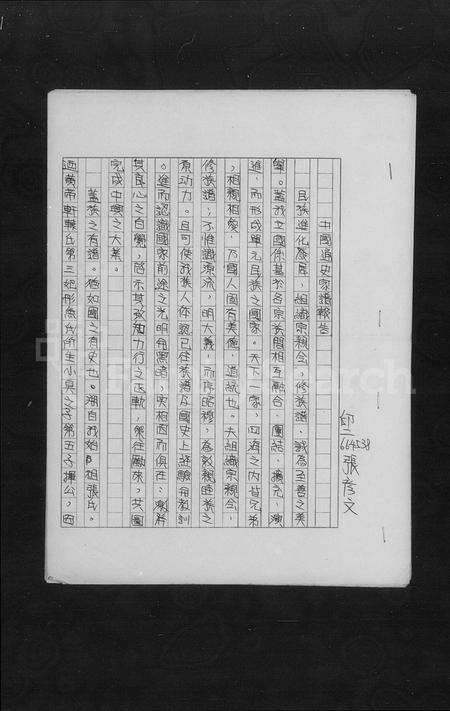 張彥文
中國通史家譜報告
民族進化發展,組織宗親會,修族譜,誠為至善之美
舉。蓋我立國係基於各宗族間相互融合,團結,擴充,演
進,而形成單元民族之國家。天下一家,四海之內皆兄弟
,相親相愛,乃國人固有美德,道統也。夫組織宗親會,
修族譜;不惟識源流,明大義,而序昭穆,為敦親睦族之
原動力。且可使我族人体認已往族譜及國史上經驗與教訓
。進而認識國家前途之光明與暗,史相因而俱在;激
其良心之自覺,啟示其致力行之正軌,策往勵來。共圖
完成中興之大業。
蓋族之有譜。猶如國之有史也。溯自我始祖張氏。
迺黃帝軒轅氏第三妃彤魚氏所生小昊之子第五子揮公。因